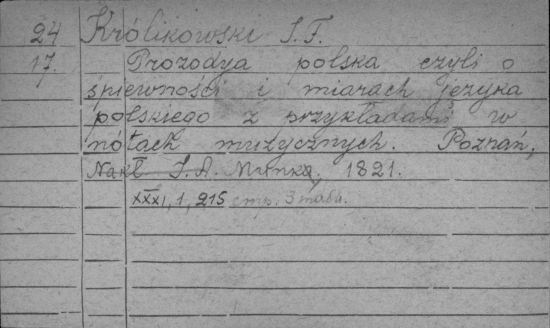 24 Królikowski J. F.
17. Prozodya polska czyli o
śpiewności i miarach języka
polskiego z przykładami w
nótach muzycznych. Poznań,
Nakł J. A. Munka, 1821.
XXXI, 1, 215 стр. 3 табл.